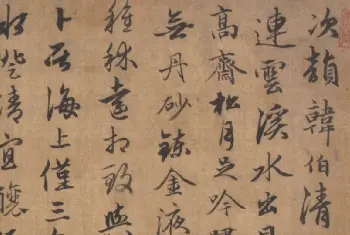 次韻韓伯清
連雲溪水出
高齋松月足吟
無丹砂鍊金液
種秫遠相致
卜居海上僅三
清宜聽